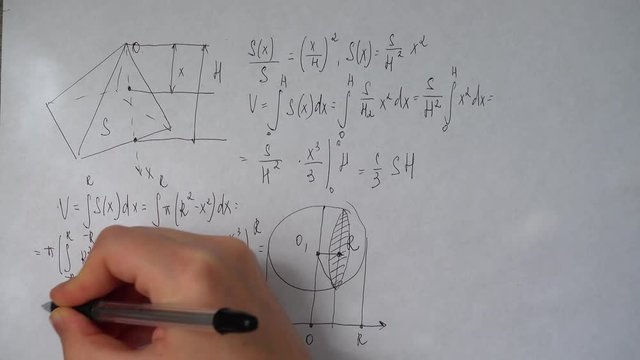 S(x)/S = (x/H)², S(x) = S/H² x²
V = ∫₀ᴴ S(x)dx = ∫₀ᴴ S/H₂ x²dx = S/H² ∫₀ᴴ x²dx =
= S/H² · x³/3 |₀ᴴ = 1/3 SH
O
x
H
S
x
V = ∫₋ᴿᴿ S(x)dx = ∫ᴿ π(R²-x²)dx =
= π(∫₋ᴿᴿ
R
=
O₁
R
O
R